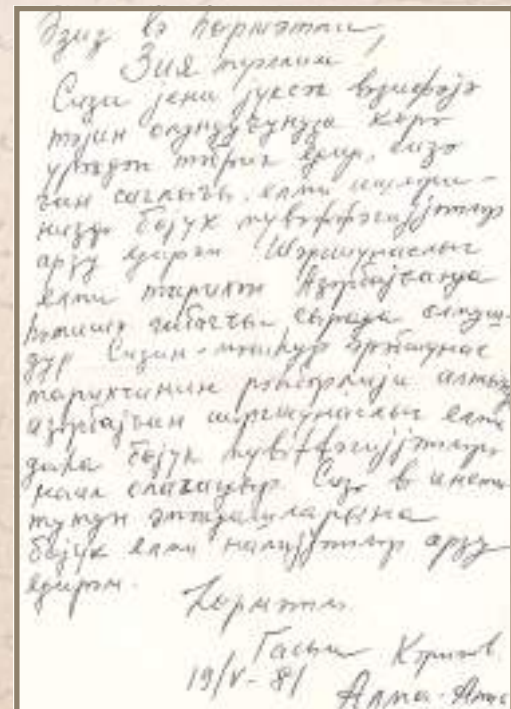 Әзиз вә һөрмәтли,
Зия муәллим
Сизи јени јүксәк вәзифәјә
тәјин олундуғунуза көрә
үрәкдән тәбрик едир, сизә
чан сағлығы, елми ишләри-
низдә бөјүк мувәффәгијјәтләр
арзу едирәм Шәргшунаслыг
елми тарихән Азәрбајҹанда
һәмишә сырада олмуш-
дур Сизин - мәшһур әрәбшунас
тарихчинин рәһбәрлији алтында
азәрбајҹан шәргшунаслыг елми
даха бөјүк мувәффәгијјәтләрә
наил олаҹагдыр Сизә вә инсти
тутун әмәкдашларына
бөјүк елми налијјәтләр арзу
едирәм.
Һөрмәтлә
Гасым Кәримов
19/V-81
Алма-Ата